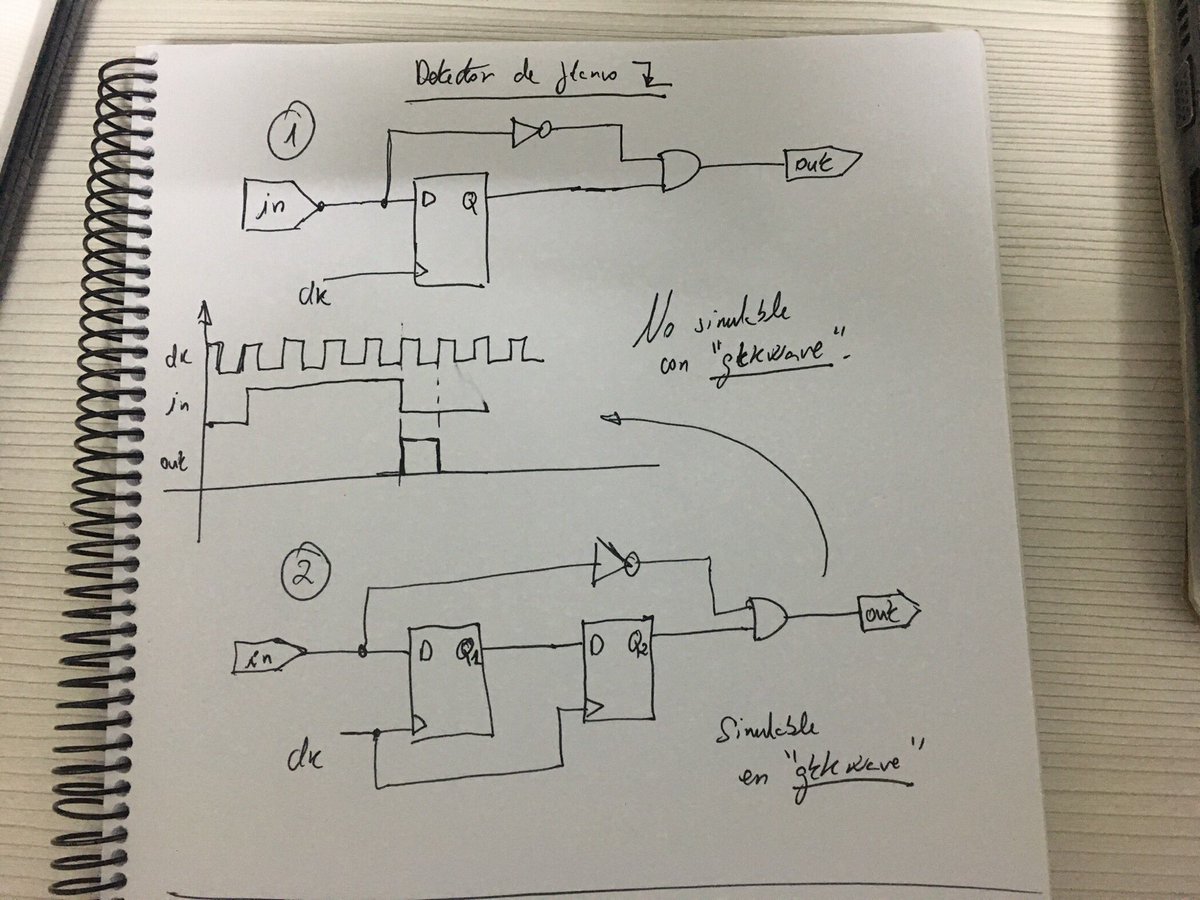 Detector de flanco
1
in
D Q
out
clk
No simulable
con "gtkwave".
clk
in
out
2
in
D Q1
D Q2
out
clk
Simulable
en "gtkwave"